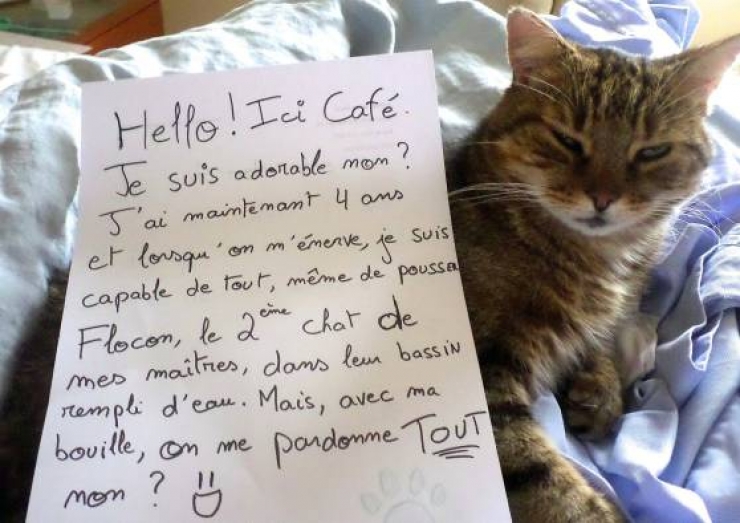 Hello! Ici Café.
Je suis adorable non?
J'ai maintenant 4 ans
et lorsqu'on m'énerve, je suis
capable de tout, même de pousse
Flocon, le 2ème chat de
mes maîtres, dans leur bassin
rempli d'eau. Mais, avec ma
bouille, on me pardonne TOUT
non? :D